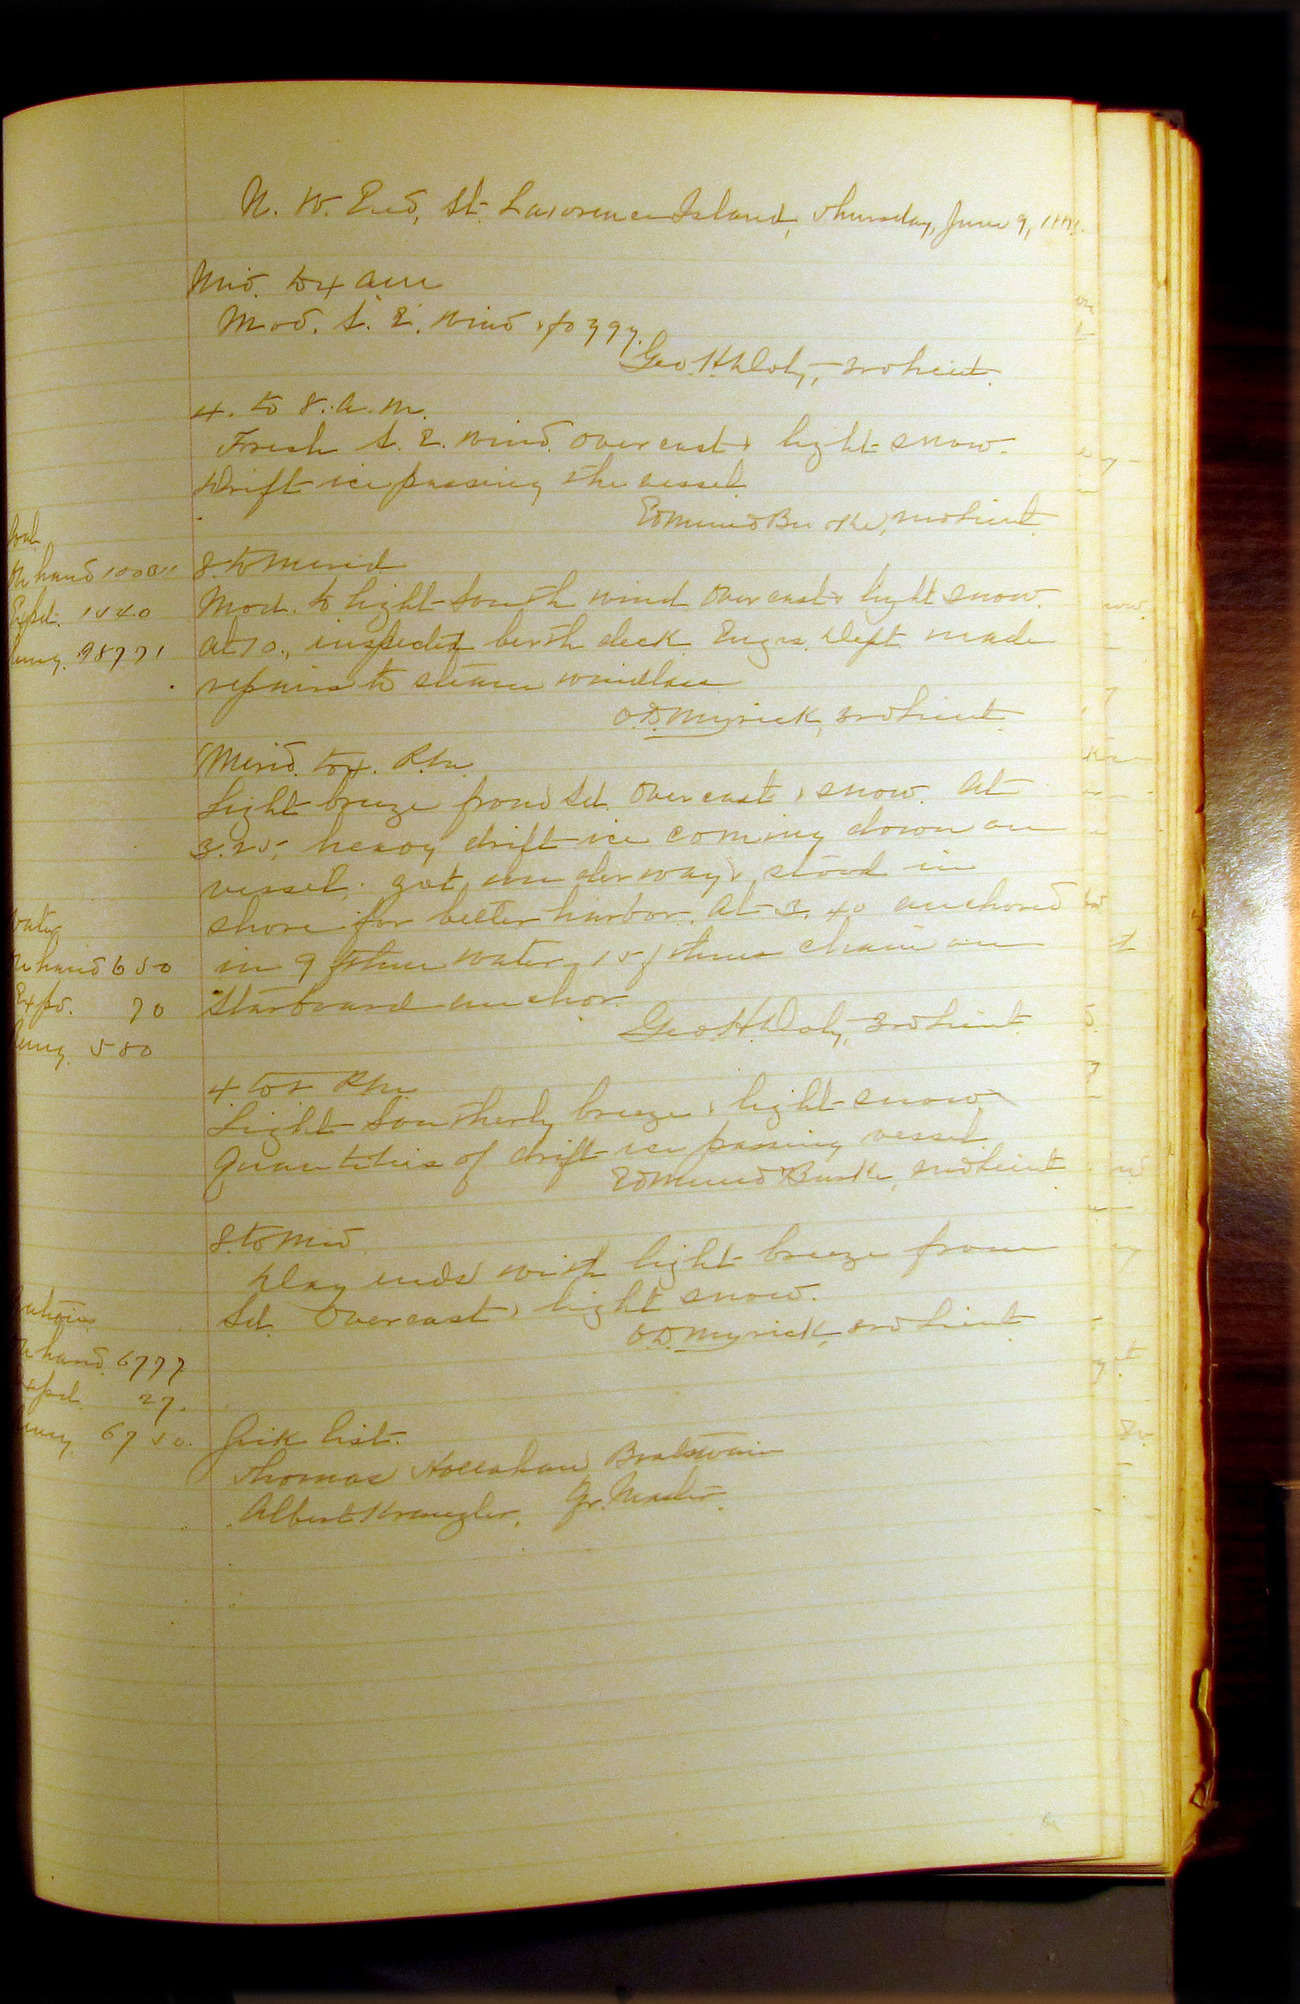 N. W. End, St. Lawrence Island, Thursday, June 9,
Mid. to 4 am
Mod. S. E. wind & foggy.
Geo. H. Doty, 3rd Lieut.
4. to 8. a. m.
Fresh S. E. wind. overcast & light snow.
Drift ice passing the vessel
Edmund Burke, 2nd Lieut.
8. to Merid
Mod. to light South wind Overcast & light snow.
At 10., inspected berth deck Engrs. Dept. made
repairs to steam windlass
O. D. Myrick, 3rd Lieut.
Merid. to 4. P.M.
Light breeze from Sd. Overcast & snow. At
3.25, heavy drift ice coming down on
vessel. got under way & stood in
shore for better harbor. At 3.40 anchored
in 9 fthms water, 15 fthms chain on
Starboard anchor.
Geo. H. Doty, 3rd Lieut.
4. to 8 P.M.
Light Southerly breeze & light snow
Quantities of drift ice passing vessel
Edmund Burke, 2nd Lieut.
8. to Mid
Day ends with light breeze from
Sd. Overcast & light snow.
O. D. Myrick, 3rd Lieut.
Sick List.
Thomas Hollahan Boatswain
Albert Krangler, Qr. Master.
Coal
On hand
Expd. 1540
Remng. 98771
Water
On hand 650
Expd. 70
Remng. 580
Rations
On hand. 6777
Expd. 27.
Remng. 6750.